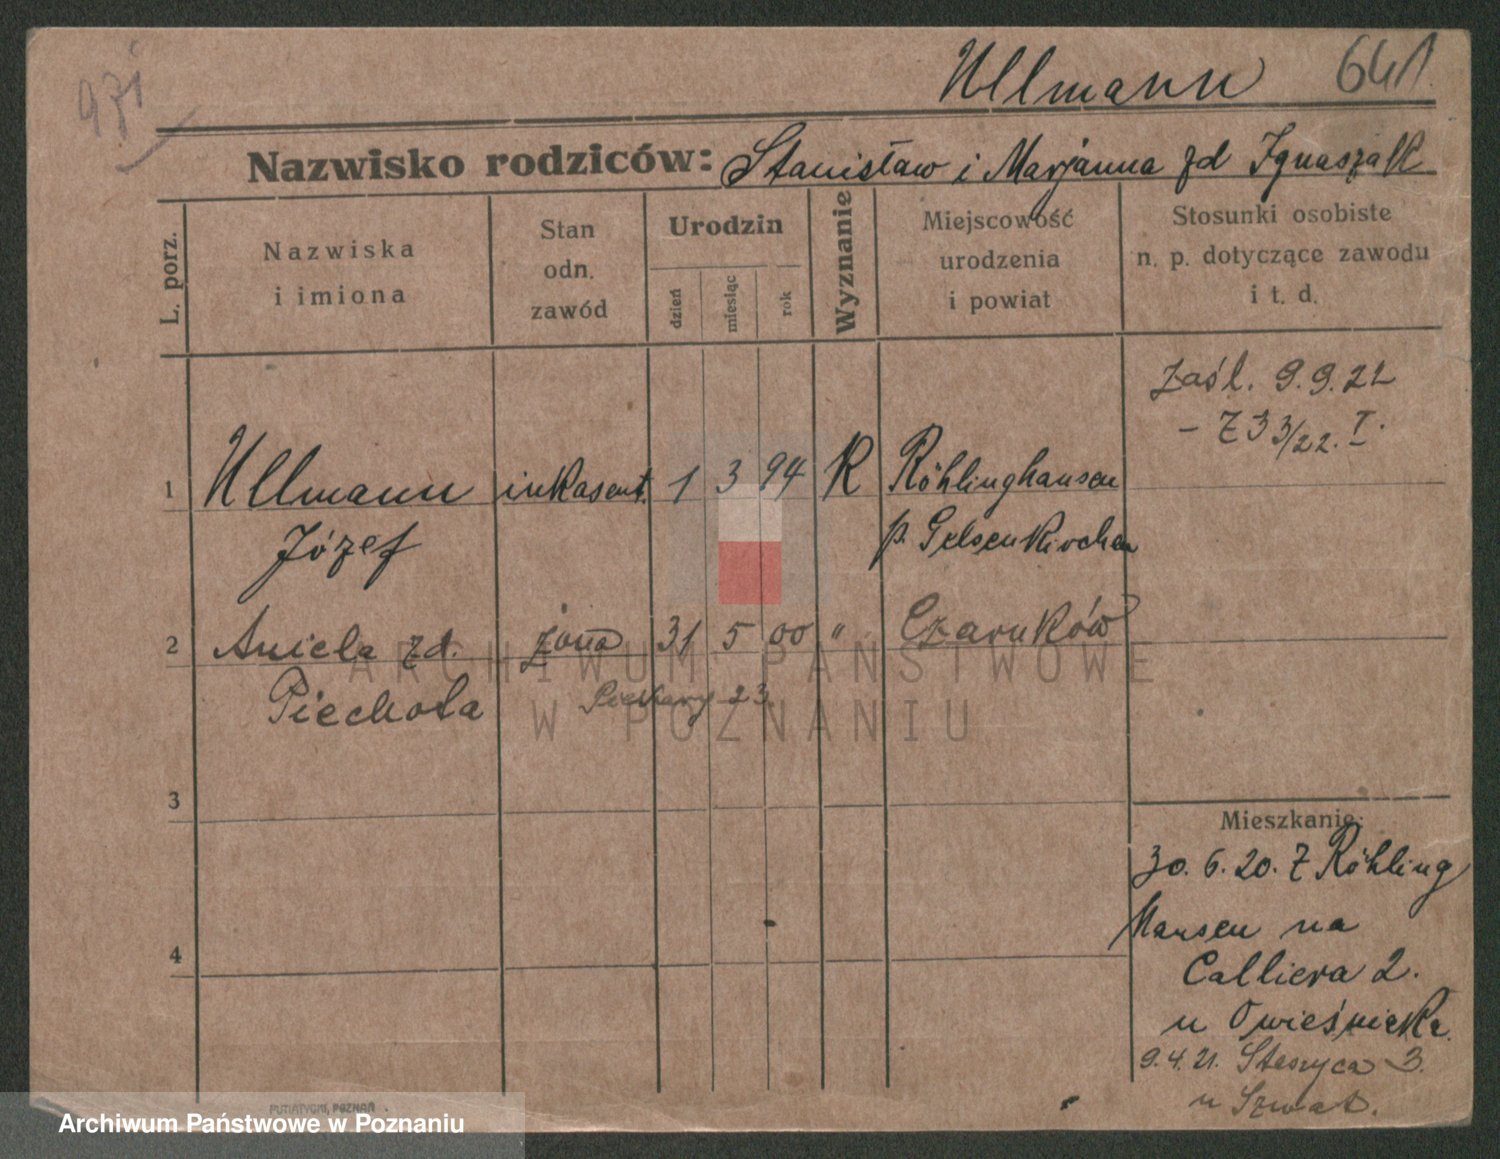 971
Ullmann 641
Nazwisko rodziców: Stanisław i Marjanna zd Ignaszak
L. porz.
Nazwiska
i imiona
Stan
odn.
zawód
Urodzin
dzień
miesiąc
rok
Wyznanie
Miejscowość
urodzenia
i powiat
Stosunki osobiste
n. p. dotyczące zawodu
i t. d.
Zaśl. 9.9.22
- Z 33/22. I.
1 Ullmann inkasent. 1 3 94 K Röhlinghausen
Józef p. Gelsenkirchen
2 Aniela zd. żona 31 5 00 " Czarnków
Piechota Piekary 23
3
Mieszkanie:
30.6.20. Z Röhling
hausen na
4
Calliera 2.
u
9.4.21. Staszyca 3.
u Szwat.
PUTIATYCKI, POZNAŃ
ARCHIWUM PAŃSTWOWE
W POZNANIU
Archiwum Państwowe w Poznaniu